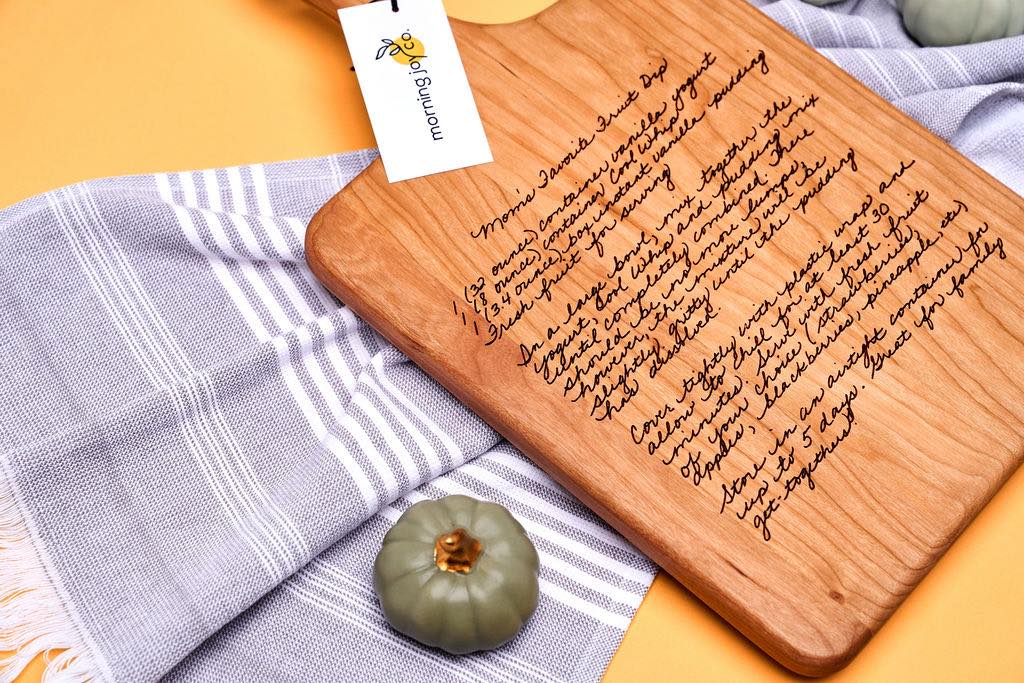 morning joy co.
Mom's Favorite Fruit Dip
1 (32 ounce) container vanilla yogurt
1 (8 ounce) container Cool Whip
1 (3.4 ounce) box instant vanilla pudding
Fresh fruit for serving
In a large bowl, mix together the
yogurt, Cool Whip and pudding mix
until completely combined. There
should be no more lumps,
however, the mixture will be
slightly gritty until the pudding
has dissolved.
Cover tightly with plastic wrap and
allow to chill for at least 30
minutes. Serve with fresh fruit
of your choice (strawberries,
apples, blackberries, pineapple, etc)
Store in an airtight container for
up to 5 days. Great for family
get-togethers!